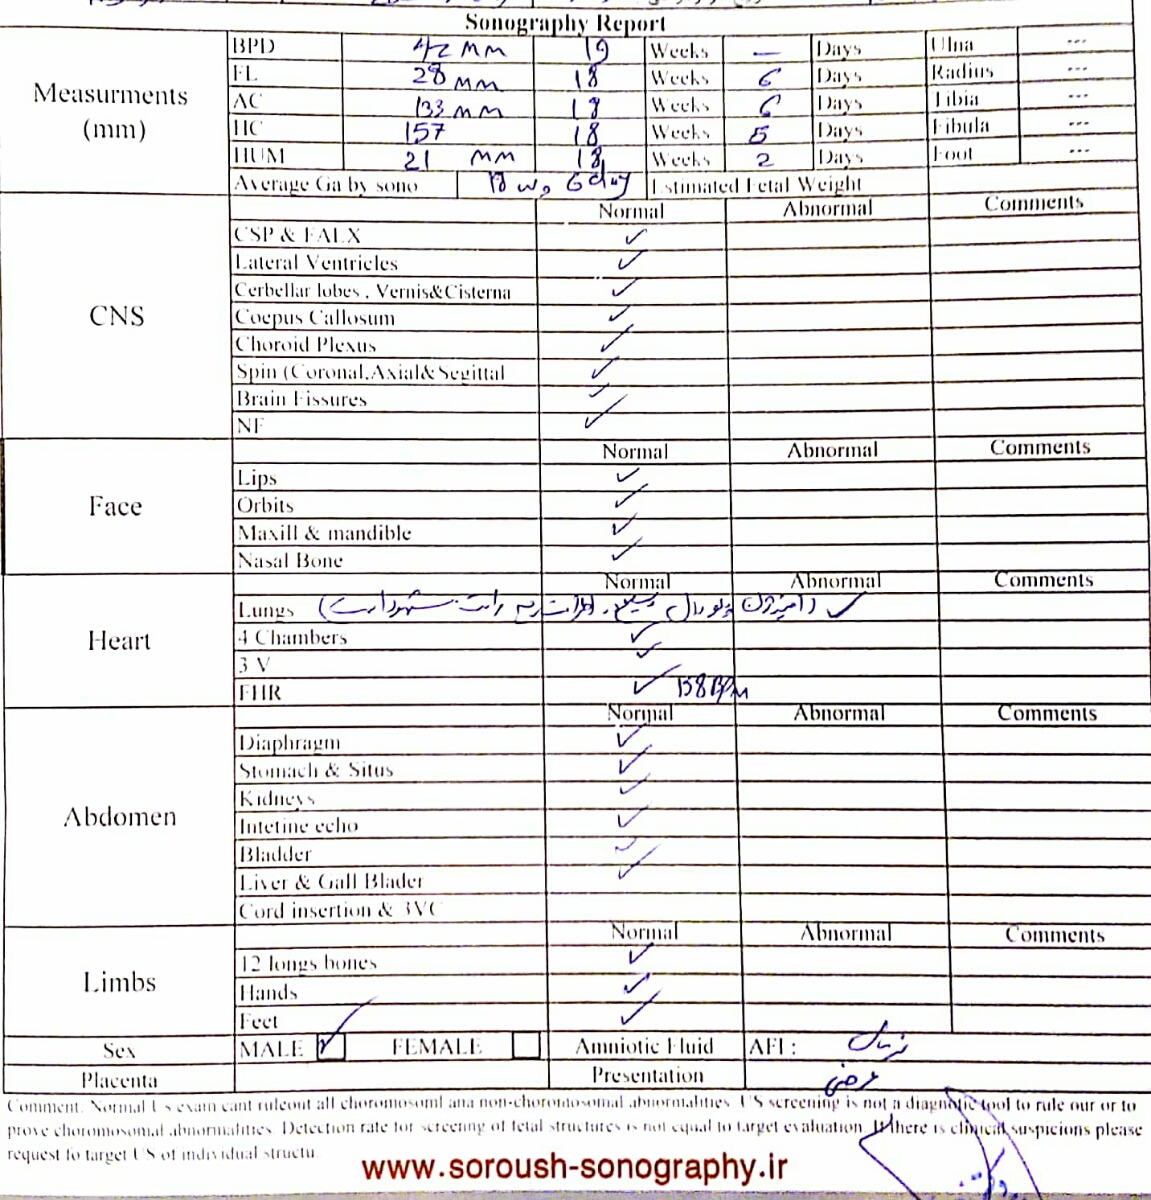 Sonography Report
Measurments (mm)
BPD 42 mm 19 Weeks — Days Ulna ---
FL 28 mm 18 Weeks 6 Days Radius ---
AC 133 mm 18 Weeks 6 Days Tibia ---
HC 157 18 Weeks 5 Days Fibula ---
HUM 21 mm 18 Weeks 2 Days Foot ---
Average Ga by sono 18 w, 6 day Estimated Fetal Weight
CNS
Normal Abnormal Comments
CSP & FALX ✓
Lateral Ventricles ✓
Cerbellar lobes , Vernis&Cisterna ✓
Coepus Callosum ✓
Choroid Plexus ✓
Spin (Coronal,Axial&Segittal ✓
Brain Fissures ✓
NF ✓
Face
Normal Abnormal Comments
Lips ✓
Orbits ✓
Maxill & mandible ✓
Nasal Bone ✓
Heart
Normal Abnormal Comments
Lungs ✓
4 Chambers ✓
3 V ✓
FHR ✓ 138 BPM
Abdomen
Normal Abnormal Comments
Diaphragm ✓
Stomach & Situs ✓
Kidneys ✓
Intetine echo ✓
Bladder ✓
Liver & Gall Blader ✓
Cord insertion & 3VC
Limbs
Normal Abnormal Comments
12 longs bones ✓
Hands ✓
Feet ✓
Sex MALE ✓ FEMALE Amniotic Fluid AFI : نرمال
Placenta Presentation عرضی
Comment: Normal Us exam cant ruleout all choromosoml ana non-choromosomal abnormalities. US screening is not a diagnotic tool to rule our or to
prove choromosomal abnormalities. Detection rate for screening of fetal structures is not equal to target evaluation. If there is clinical suspicions please
request fo target US of individual structu.
www.soroush-sonography.ir